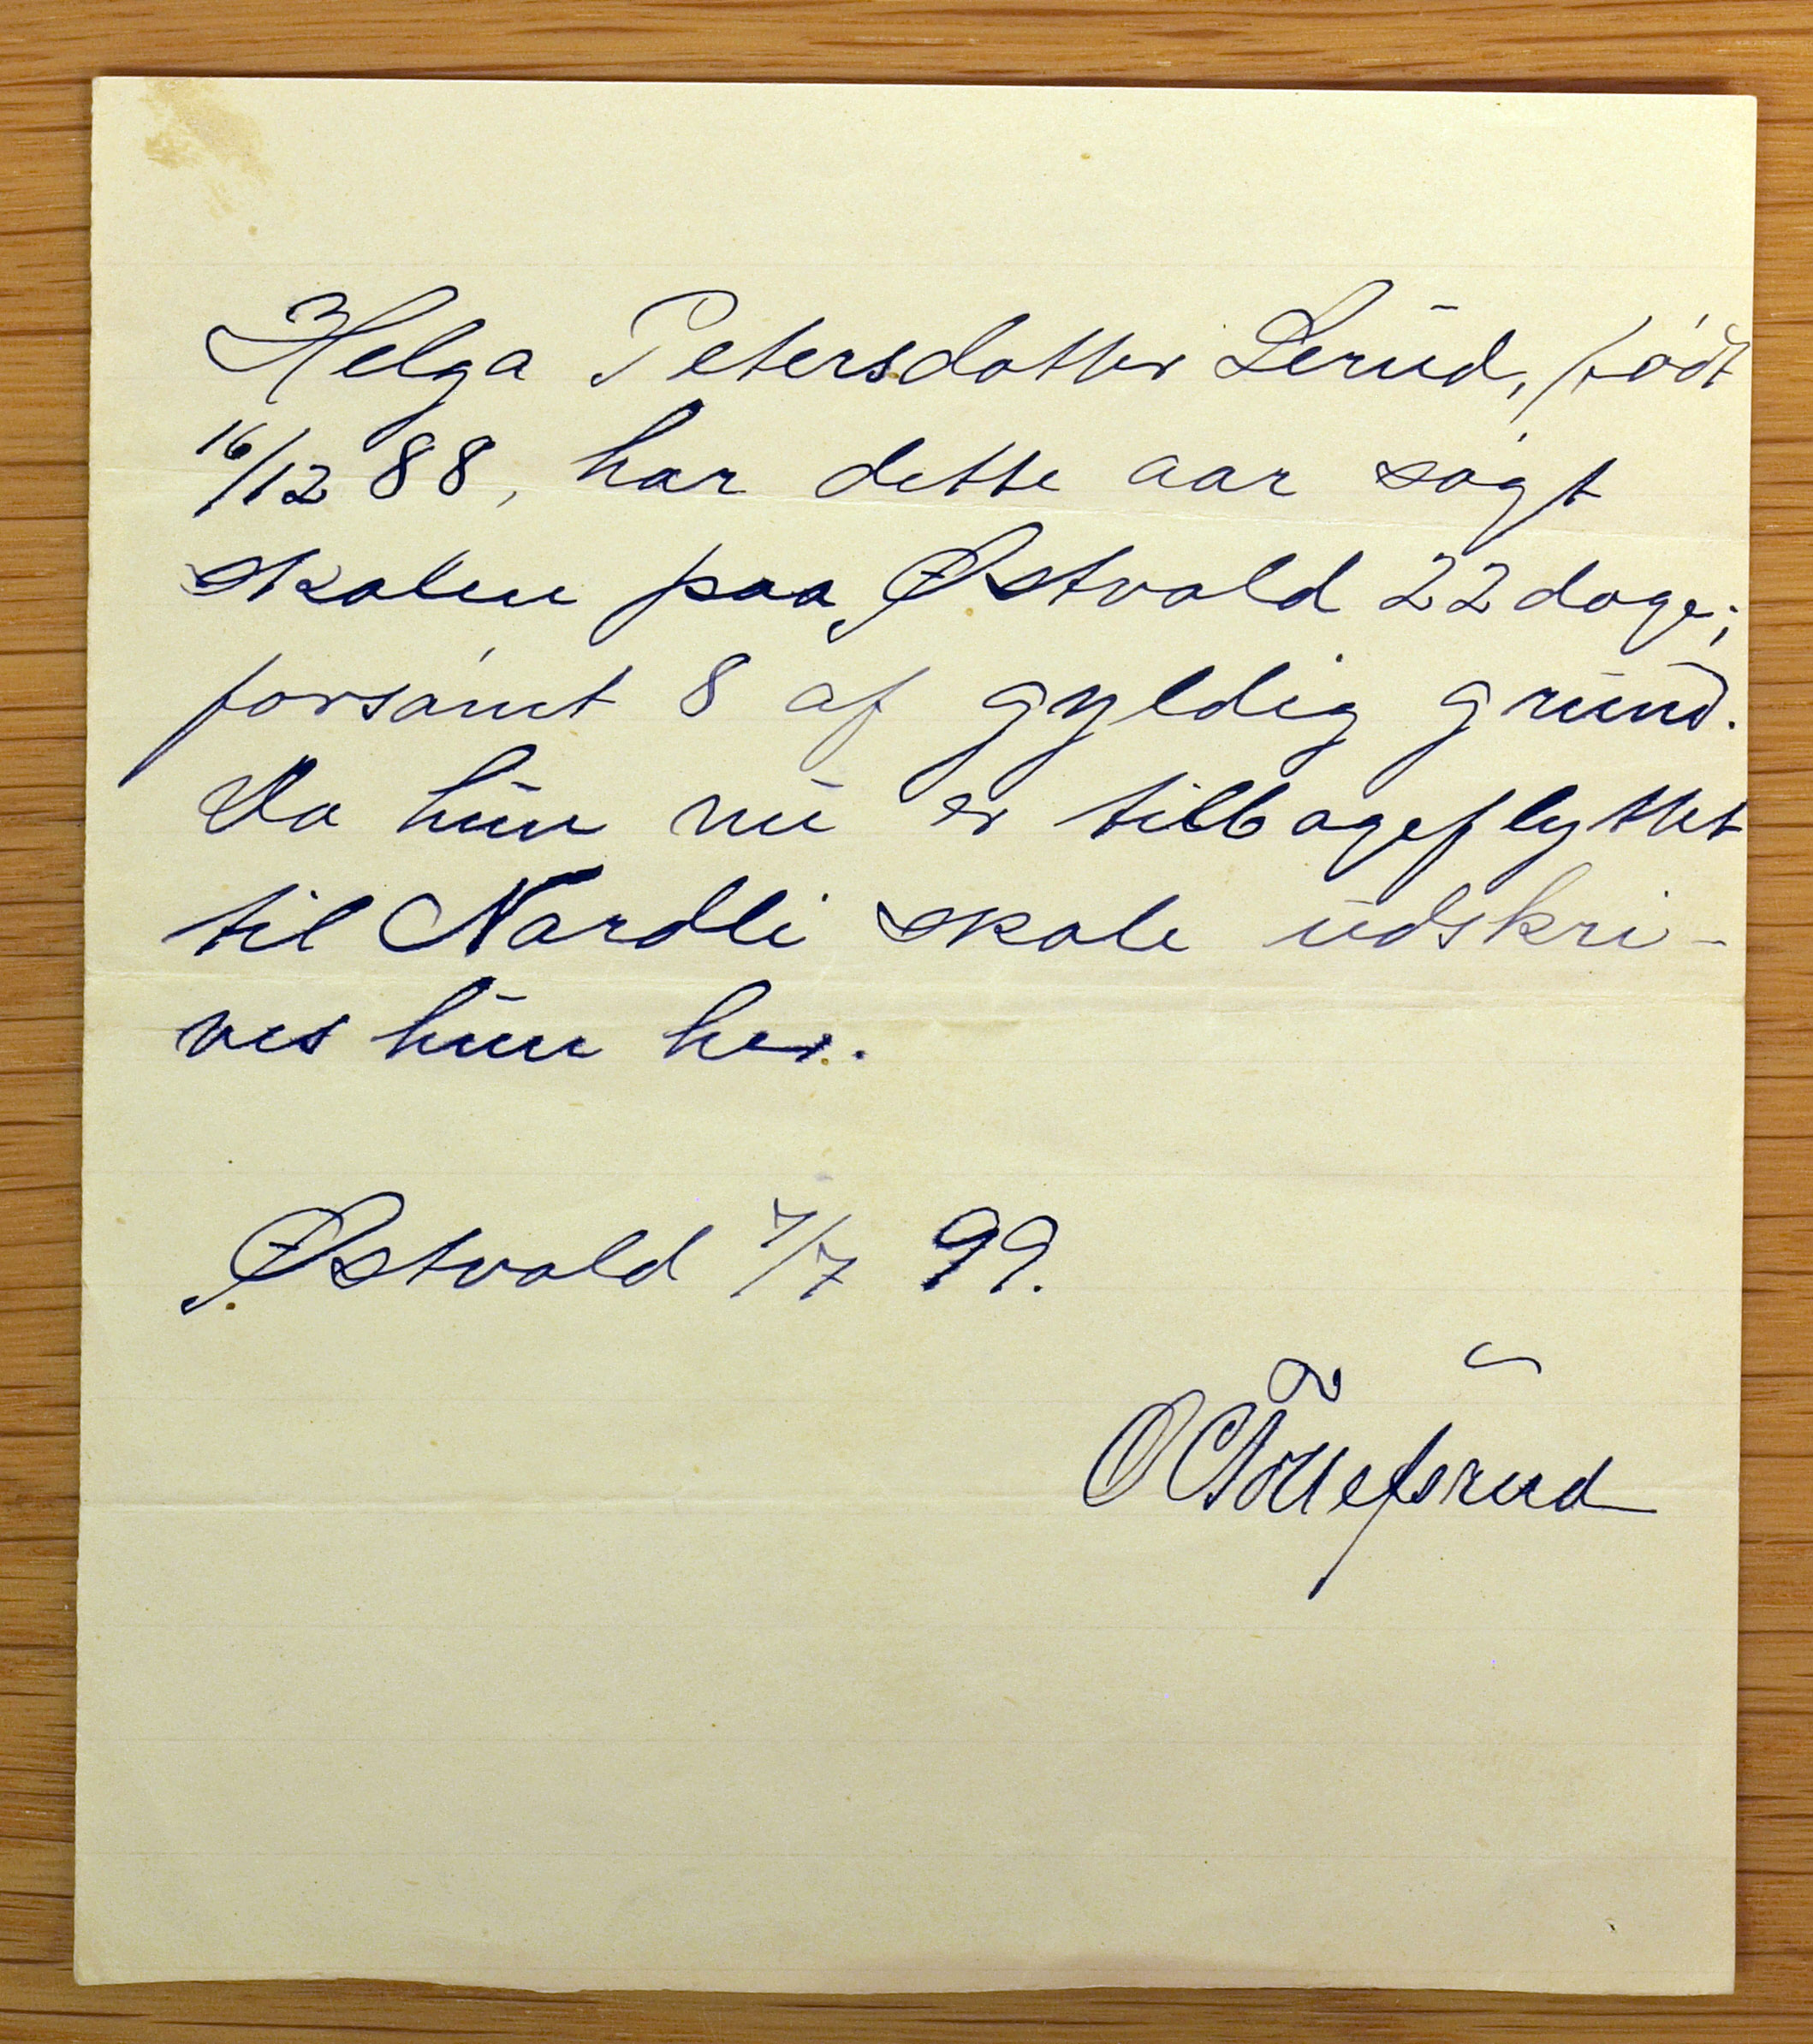 Helga Petersdotter Lerud, født
16/12 88, har dette aar søgt
skolen paa Østvold 22 dage;
forsømt 8 af gyldig grund.
Da hun nu er tilbageflyttet
til Nordli skole udskri-
ves hun her.
Østvold 7/7 99.
O Tollefsrud